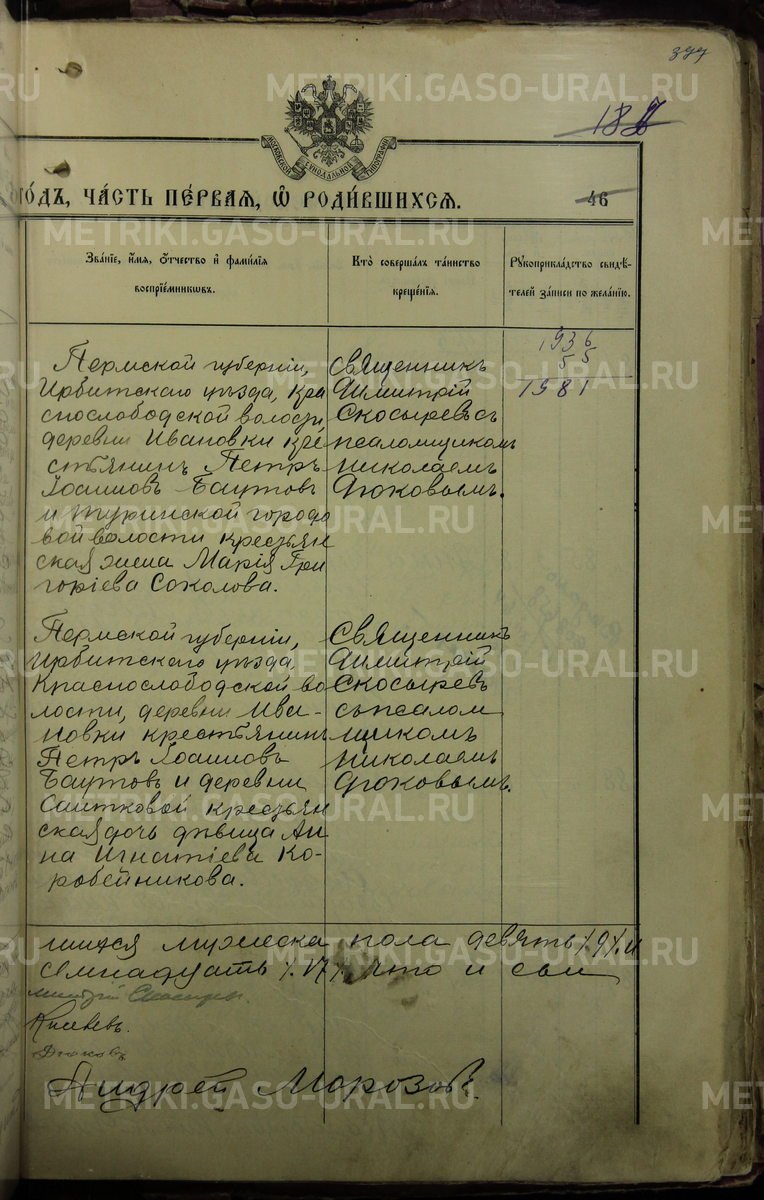 399
187
МОСКОВСКОЙ СУНОДАЛЬНОЙ ТИПОГРАФІИ
ГО́ДЪ, ЧА́СТЬ ПЕ́РВАЯ, Ѡ҆ РОДИ́ВШИХСЯ.
46
Зва́нїе, и҆́мя, ѻ҆́тчество и҆ фами́лїя
воспрїе́мниковъ.
Кто̀ соверша́лъ та́инство
креще́нїя.
Рꙋкоприкла́дство свидѣ́-
телей за́писи по жела́нїю.
1936
55
1981
Пермской губерніи,
Ирбитскаго уѣзда, Кра
снослободской волости,
деревни Ивановки кре
стьянинъ Петръ
Іоанновъ Баутовъ
и Туринской городо
вой волости крестьян
ская жена Марія Гри
горіева Соколова.
Священникъ
Димитрій
Скосыревъ съ
псаломщикомъ
Николаемъ
Дюковымъ.
Пермской губерніи,
Ирбитскаго уѣзда,
Краснослободской во
лости, деревни Ива-
новки крестьянинъ
Петръ Іоанновъ
Баутовъ и деревни
Саитковой крестьян
ская дочь дѣвица Ан
на Игнатіева Ко-
робейникова.
Священникъ
Димитрій
Скосыревъ
съ псалом
щикомъ
Николаемъ
Дюковымъ.
шихся мужеска пола девять /.9/. и
семнадцать /.17/. что и сви
митрій Скосырев.
Дюковъ
Андрей Морозовъ.
METRIKI.GASO-URAL.RU